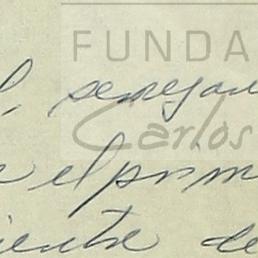 FUNDA
l, semejan
Carlos
e el prim
iente de